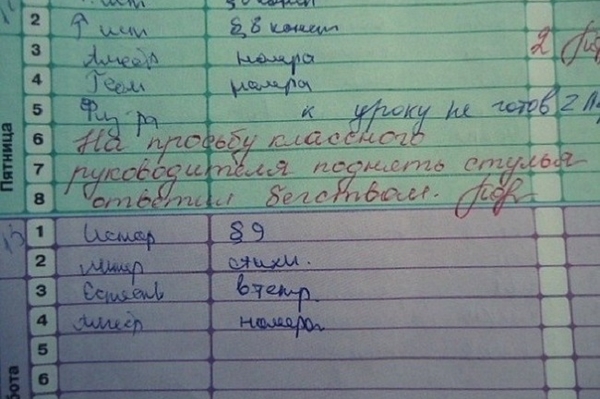 2 § 8 конст
3 Алгебр номера 2
4 Геом номера
5 Физ-ра к уроку не готов 2
6 На просьбу классного
7 руководителя поднять стулья
8 ответил бегством.
Пятница
1 Истор § 9
2 Литер стихи.
3 Естеств в тетр.
4 Алгебр номера
5
6
бота